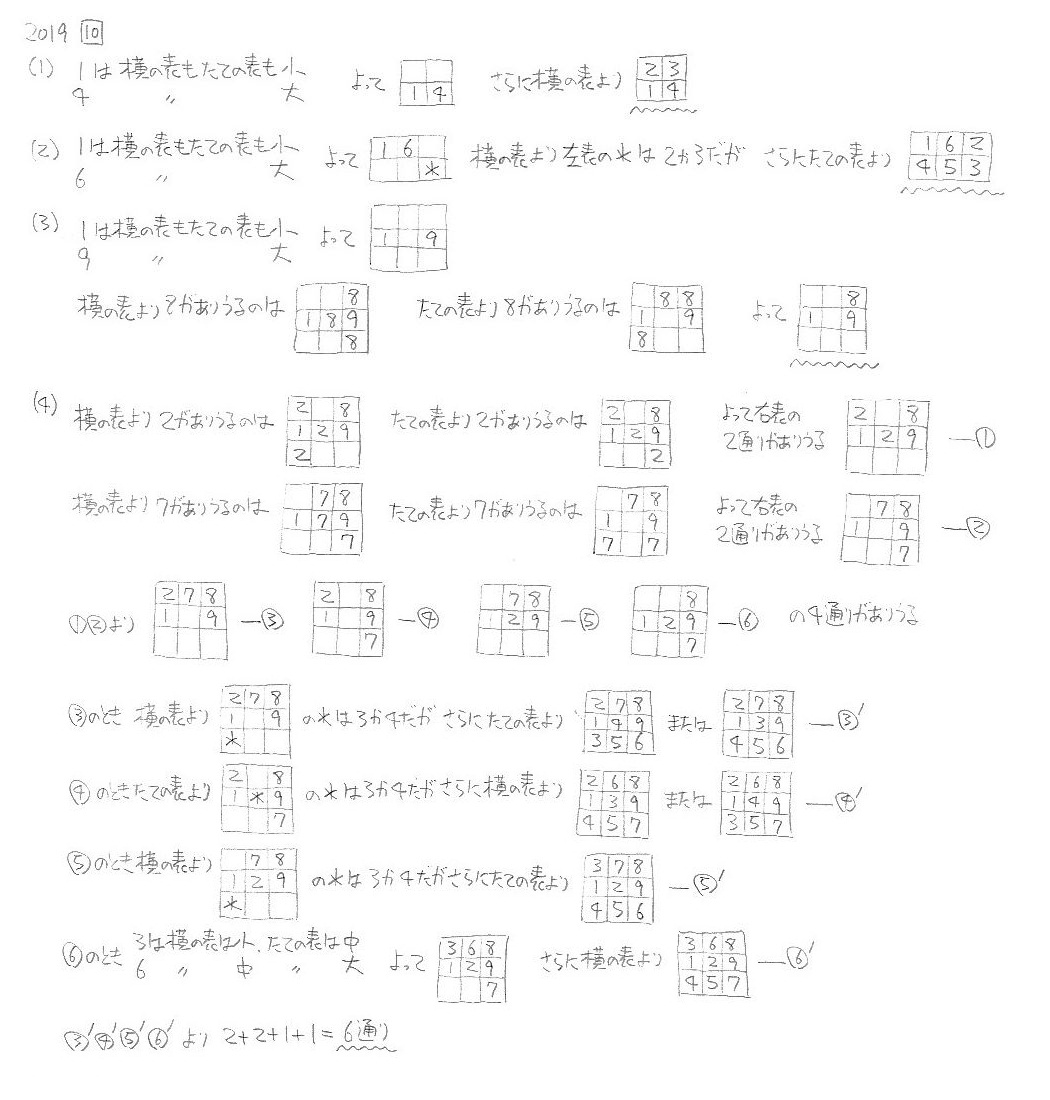 2019 10
(1) 1は横の表もたての表も小 よって 1 4 さらに横の表より 2 3 1 4
4 〃 大
(2) 1は横の表もたての表も小 よって 1 6 * 横の表より左表の*は2か3だが さらにたての表より 1 6 2 4 5 3
6 〃 大
(3) 1は横の表もたての表も小 よって 1 9
9 〃 大
横の表より8がありうるのは 8 1 8 9 8 たての表より8がありうるのは 8 8 1 9 8 よって 8 1 9
(4) 横の表より2がありうるのは 2 8 1 2 9 2 たての表より2がありうるのは 2 8 1 2 9 2 よって右表の 2 8 1 2 9 ―①
2通りがありうる
横の表より7がありうるのは 7 8 1 7 9 7 たての表より7がありうるのは 7 8 1 9 7 7 よって右表の 7 8 1 9 7 ―②
2通りがありうる
①②より 2 7 8 1 9 ―③ 2 8 1 9 7 ―④ 7 8 1 2 9 ―⑤ 8 1 2 9 7 ―⑥ の4通りがありうる
③のとき 横の表より 2 7 8 1 9 * の*は3か4だが さらにたての表より 2 7 8 1 4 9 3 5 6 または 2 7 8 1 3 9 4 5 6 ―③′
④のときたての表より 2 8 1 * 9 7 の*は3か4だがさらに横の表より 2 6 8 1 3 9 4 5 7 または 2 6 8 1 4 9 3 5 7 ―④′
⑤のとき横の表より 7 8 1 2 9 * の*は3か4だがさらにたての表より 3 7 8 1 2 9 4 5 6 ―⑤′
⑥のとき 3は横の表は小、たての表は中 よって 3 6 8 1 2 9 7 さらに横の表より 3 6 8 1 2 9 4 5 7 ―⑥′
6 〃 中 〃 大
③′④′⑤′⑥′より 2+2+1+1=6通り